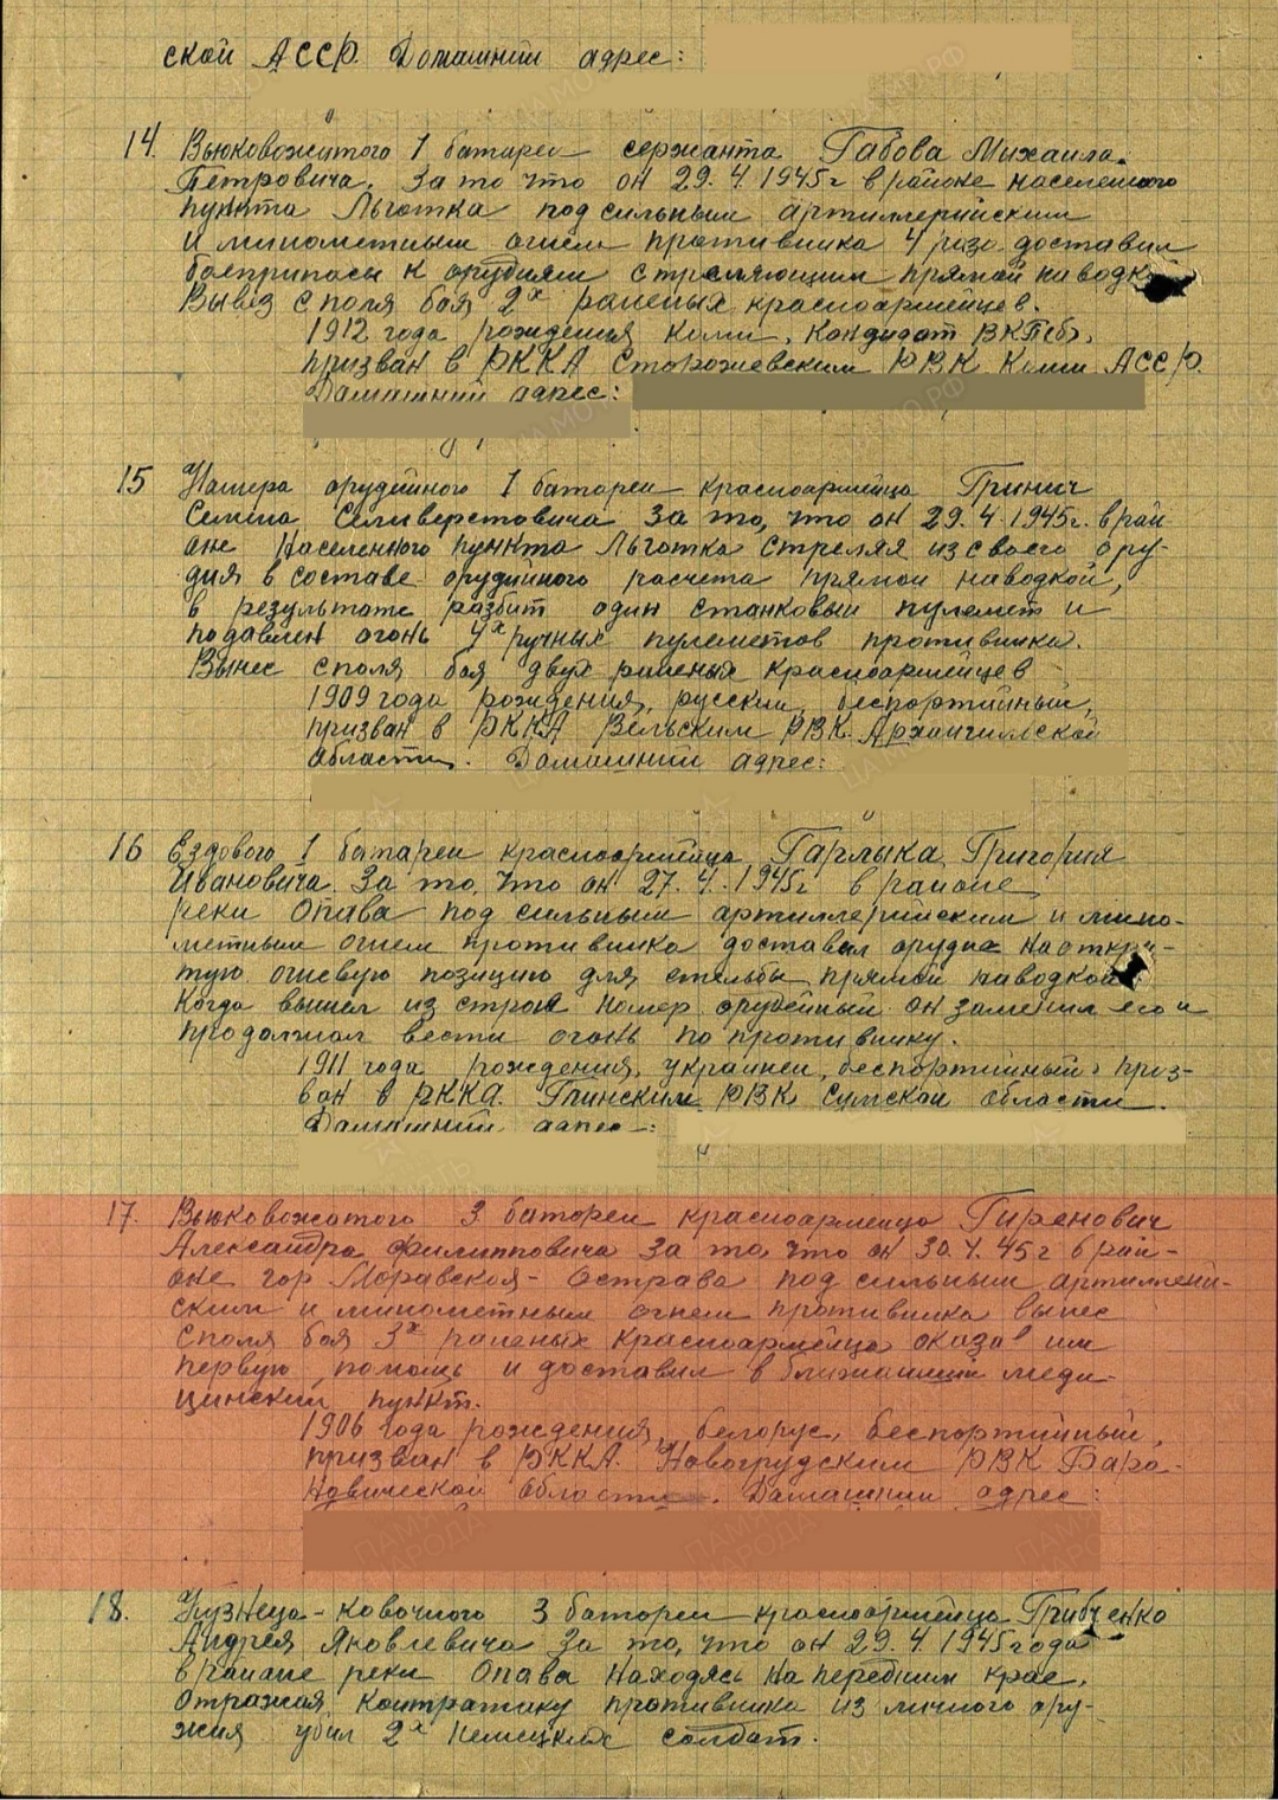 ской АССР. Домашний адрес:
14. Вьюковожатого 1 батареи сержанта Габова Михаила
Петровича. За то что он 29.4.1945г в районе населенного
пункта Льготка под сильным артиллерийским
и минометным огнем противника 4 раза доставил
боеприпасы к орудиям стреляющим прямой наводкой
Вывез с поля боя 2х раненых красноармейцев.
1912 года рождения коми, кандидат ВКП(б),
призван в РККА Сторожевским РВК Коми АССР.
Домашний адрес:
15 Номера орудийного 1 батареи красноармейца Гринич
Семена Селиверстовича за то, что он 29.4.1945г. в рай-
оне населенного пункта Льготка стреляя из своего ору-
дия в составе орудийного расчета прямой наводкой,
в результате разбит один станковый пулемет и
подавлен огонь 4х ручных пулеметов противника.
Вынес с поля боя двух раненых красноармейцев
1909 года рождения, русский, беспартийный,
призван в РККА Вельским РВК Архангельской
области. Домашний адрес:
16 Ездового 1 батареи красноармейца Гарлыка Григория
Ивановича. За то, что он 27.4.1945г в районе
реки Опава под сильным артиллерийским и мино-
метным огнем противника доставил орудие на откры-
тую огневую позицию для стельбы прямой наводкой
Когда вышел из строя номер орудейный он заменил его и
продолжал вести огонь по противнику.
1911 года рождения, украинец, беспартийный, приз-
ван в РККА Глинским РВК Сумской области.
Домашний адрес:
17. Вьюковожатого 3 батареи красноармейца Гиренович
Александра Филипповича за то, что он 30.4.45г в рай-
оне гор Моравская-Острава под сильным артиллери-
ским и минометным огнем противника вынес
с поля боя 3х раненых красноармейца оказал им
первую помощь и доставил в ближайший меди-
цинский пункт.
1906 года рождения, белорус, беспартийный,
призван в РККА Новогрудским РВК Бара-
новической области. Домашний адрес:
18. Кузнеца-ковочного 3 батареи красноармейца Грибченко
Андрея Яковлевича за то, что он 29.4.1945 года
в районе реки Опава находясь на переднем крае,
отражая контратаку противника из личного ору-
жия убил 2х немецких солдат.